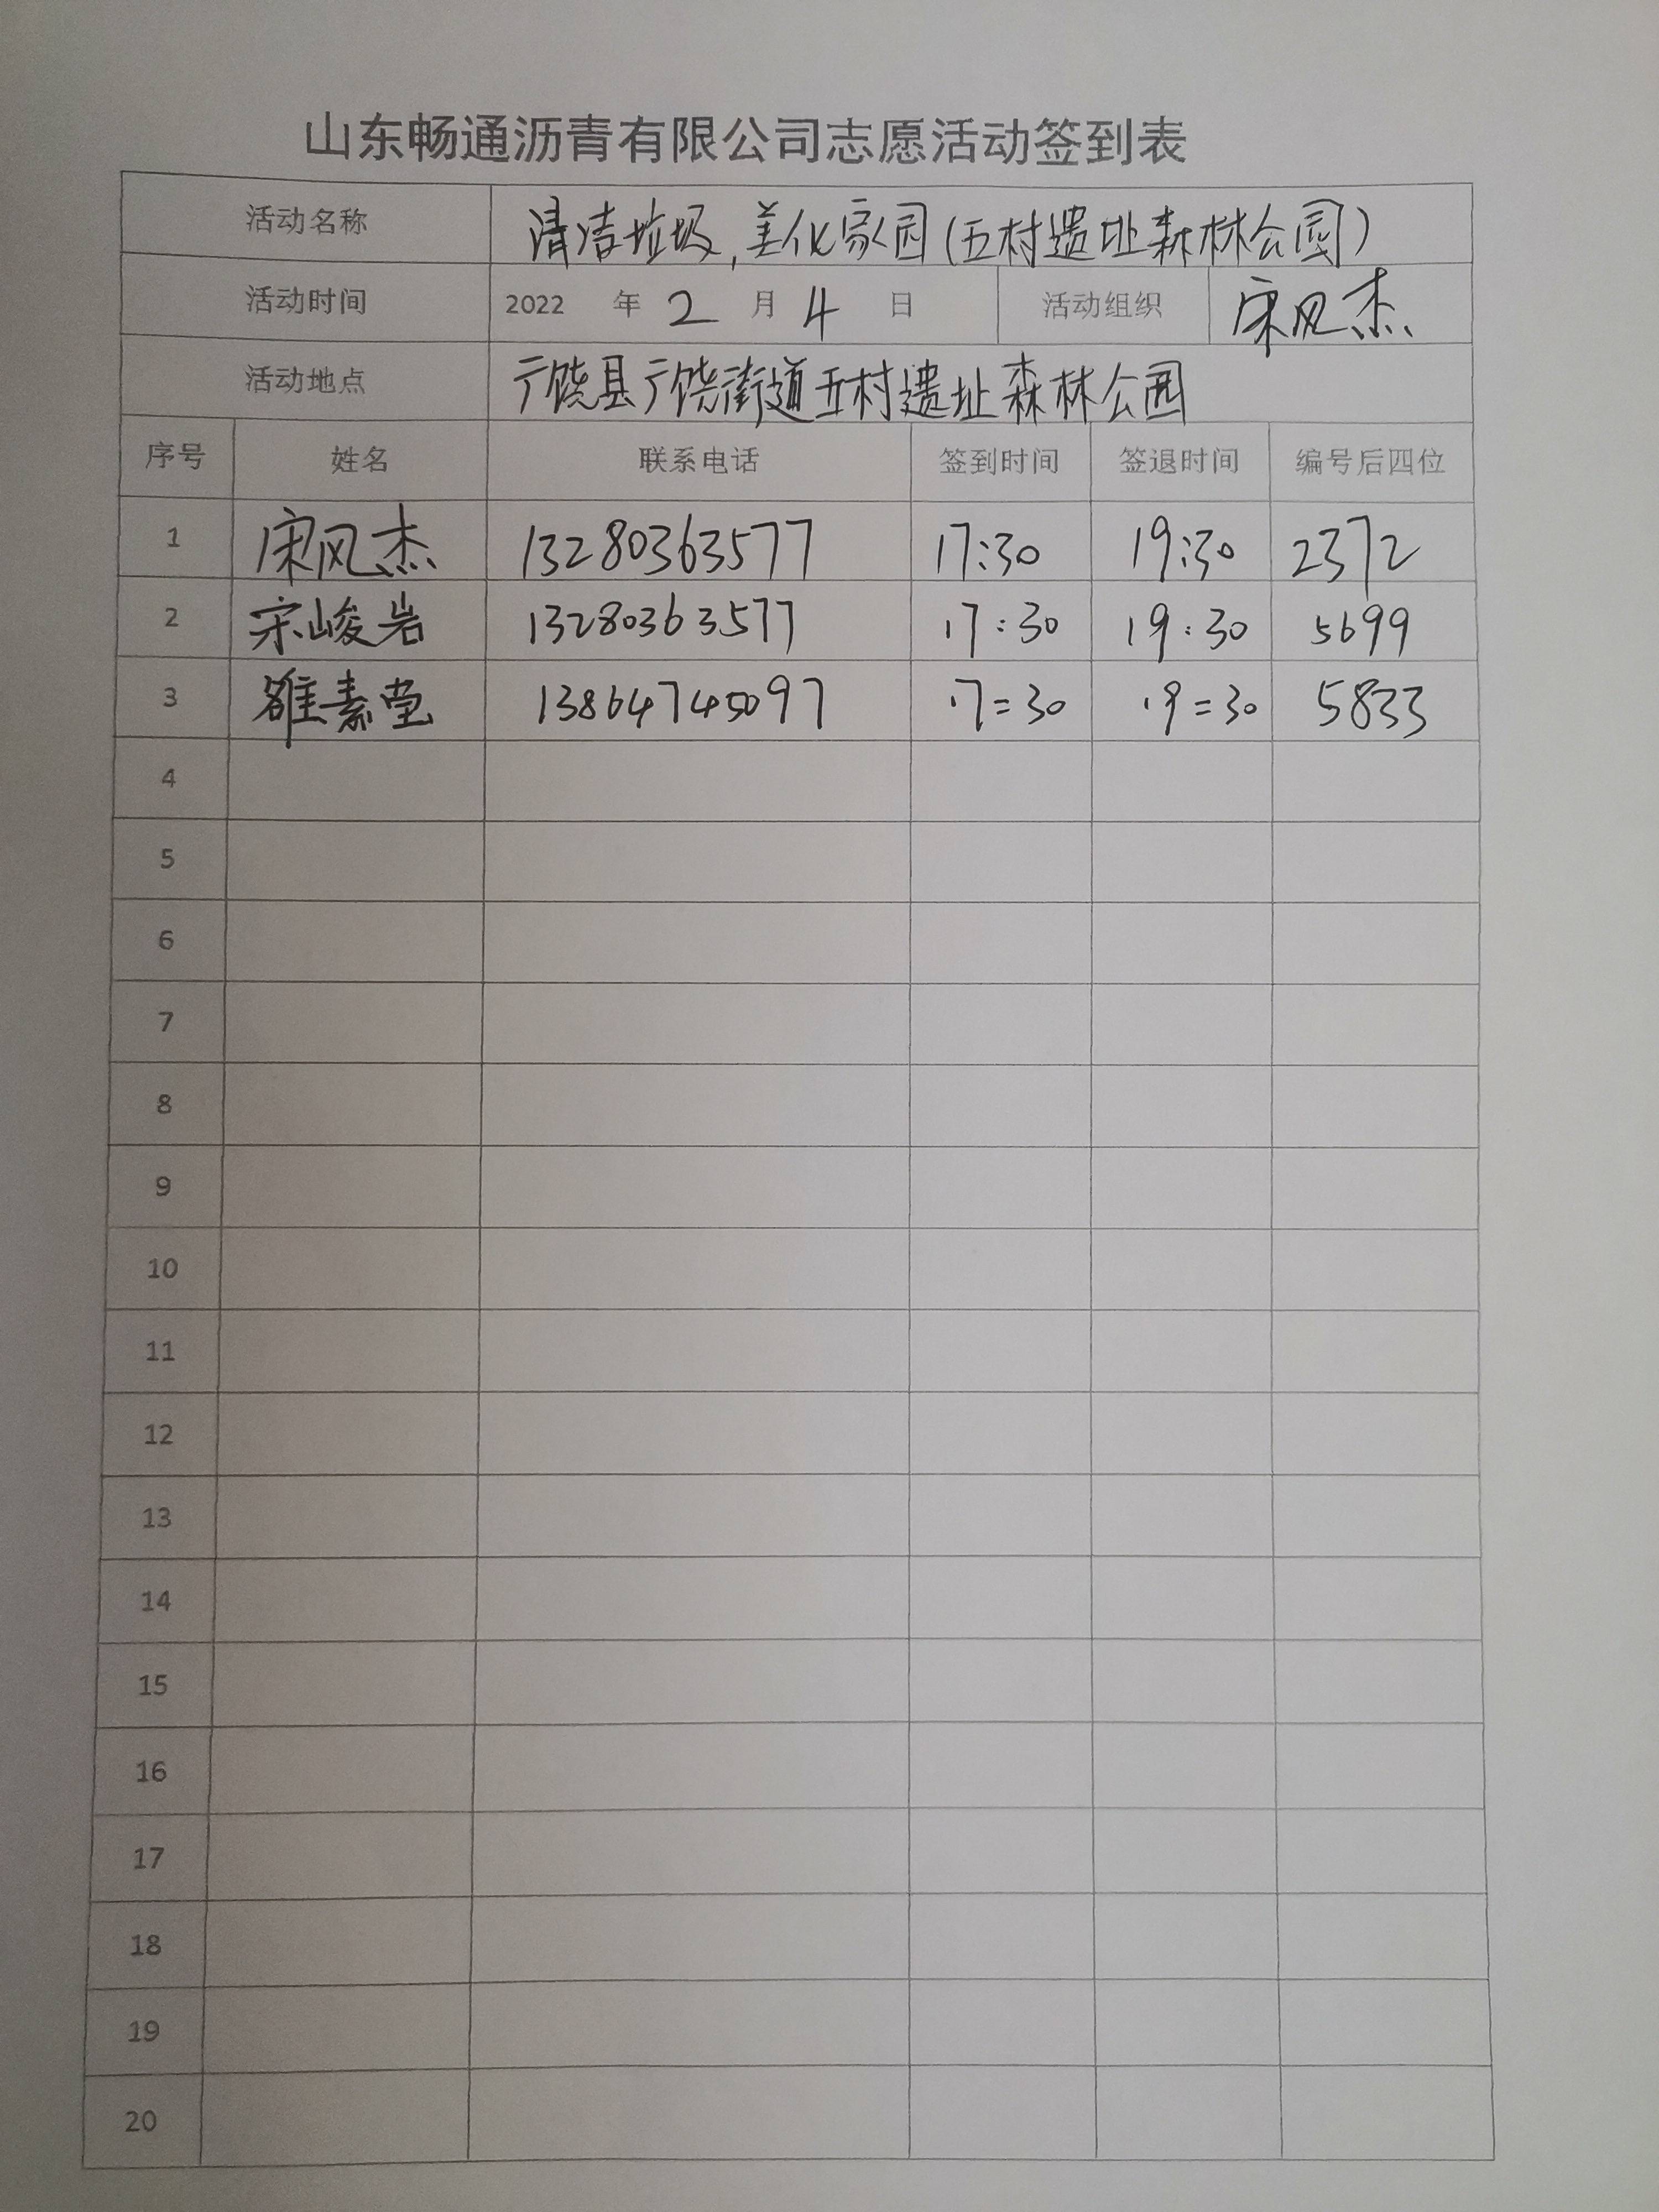 山东畅通沥青有限公司志愿活动签到表
活动名称 清洁垃圾,美化家园(五村遗址森林公园)
活动时间 2022 年 2 月 4 日 活动组织 宋风杰
活动地点 广饶县广饶街道五村遗址森林公园
序号 姓名 联系电话 签到时间 签退时间 编号后四位
1 宋风杰 13280363577 17:30 19:30 2372
2 宋峻岩 13280363577 17:30 19:30 5699
3 雒素莹 13864745097 17=30 19=30 5833
4
5
6
7
8
9
10
11
12
13
14
15
16
17
18
19
20